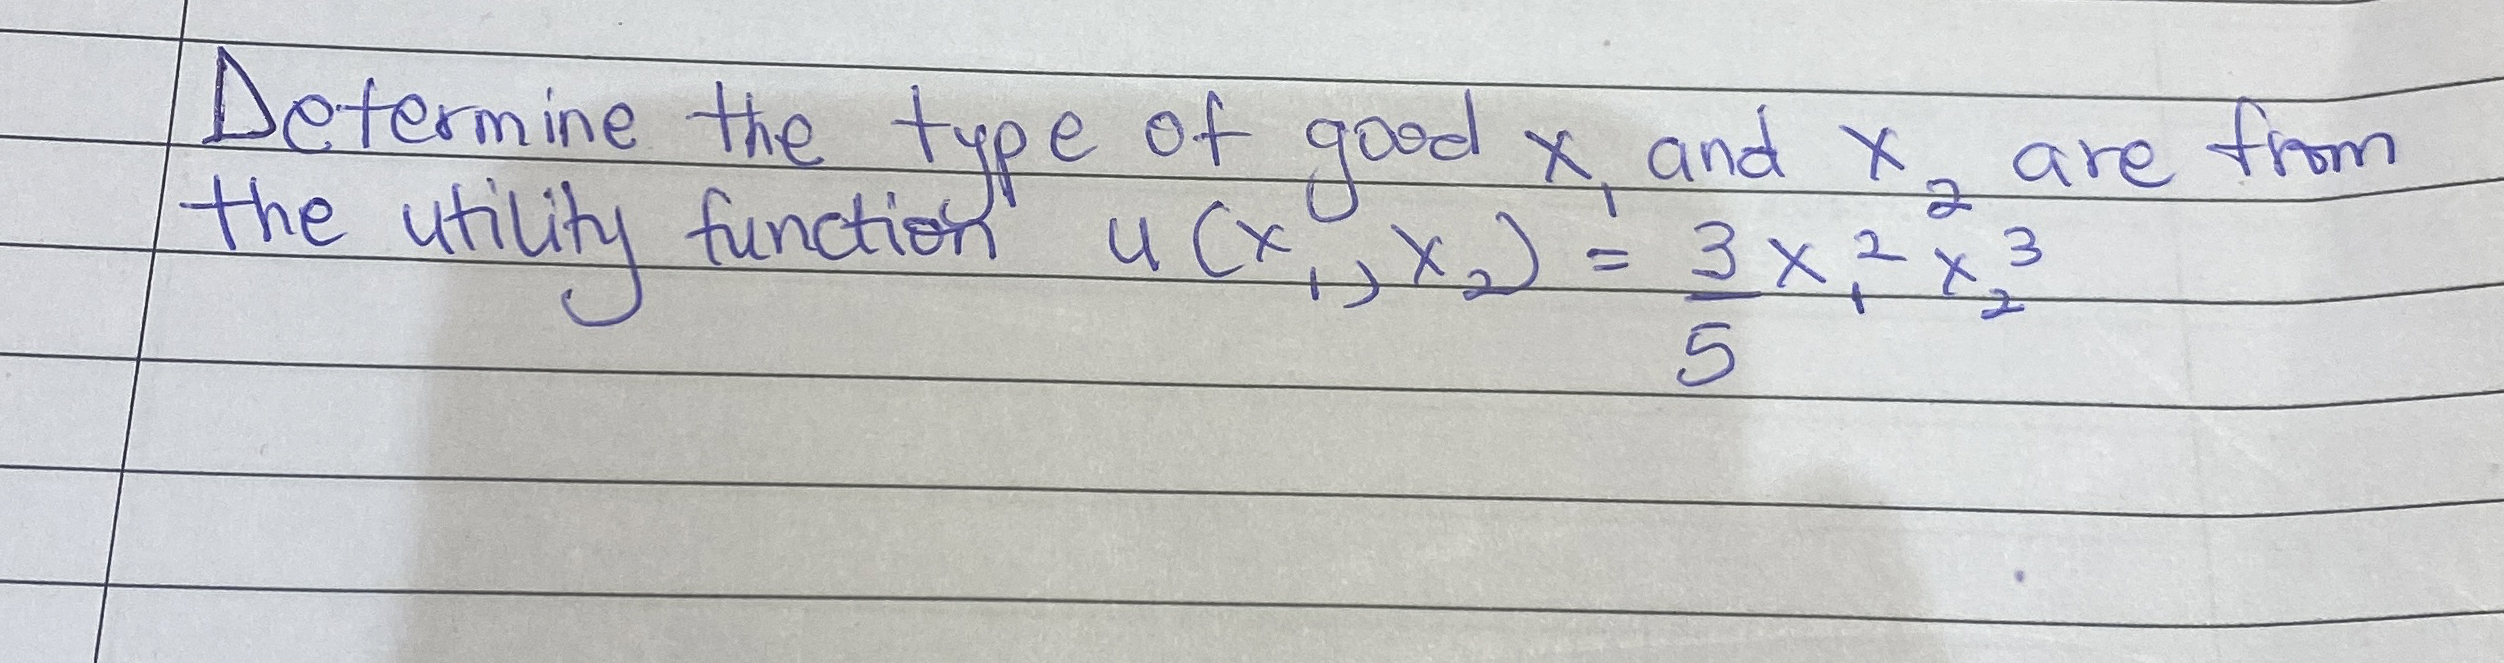 Determine the type of good x₁ and x₂ are from
the utility function u(x₁, x₂) = 3/5 x₁² x₂³